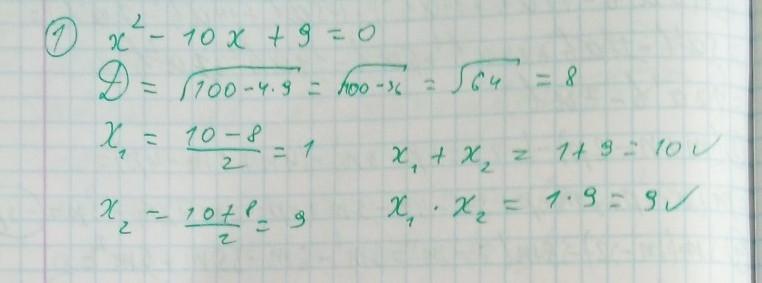 ① x² - 10x + 9 = 0
D = √(100-4·9) = √(100-36) = √64 = 8
x₁ = (10-8)/2 = 1
x₁ + x₂ = 1+9 = 10 ✓
x₂ = (10+8)/2 = 9
x₁ · x₂ = 1·9 = 9 ✓